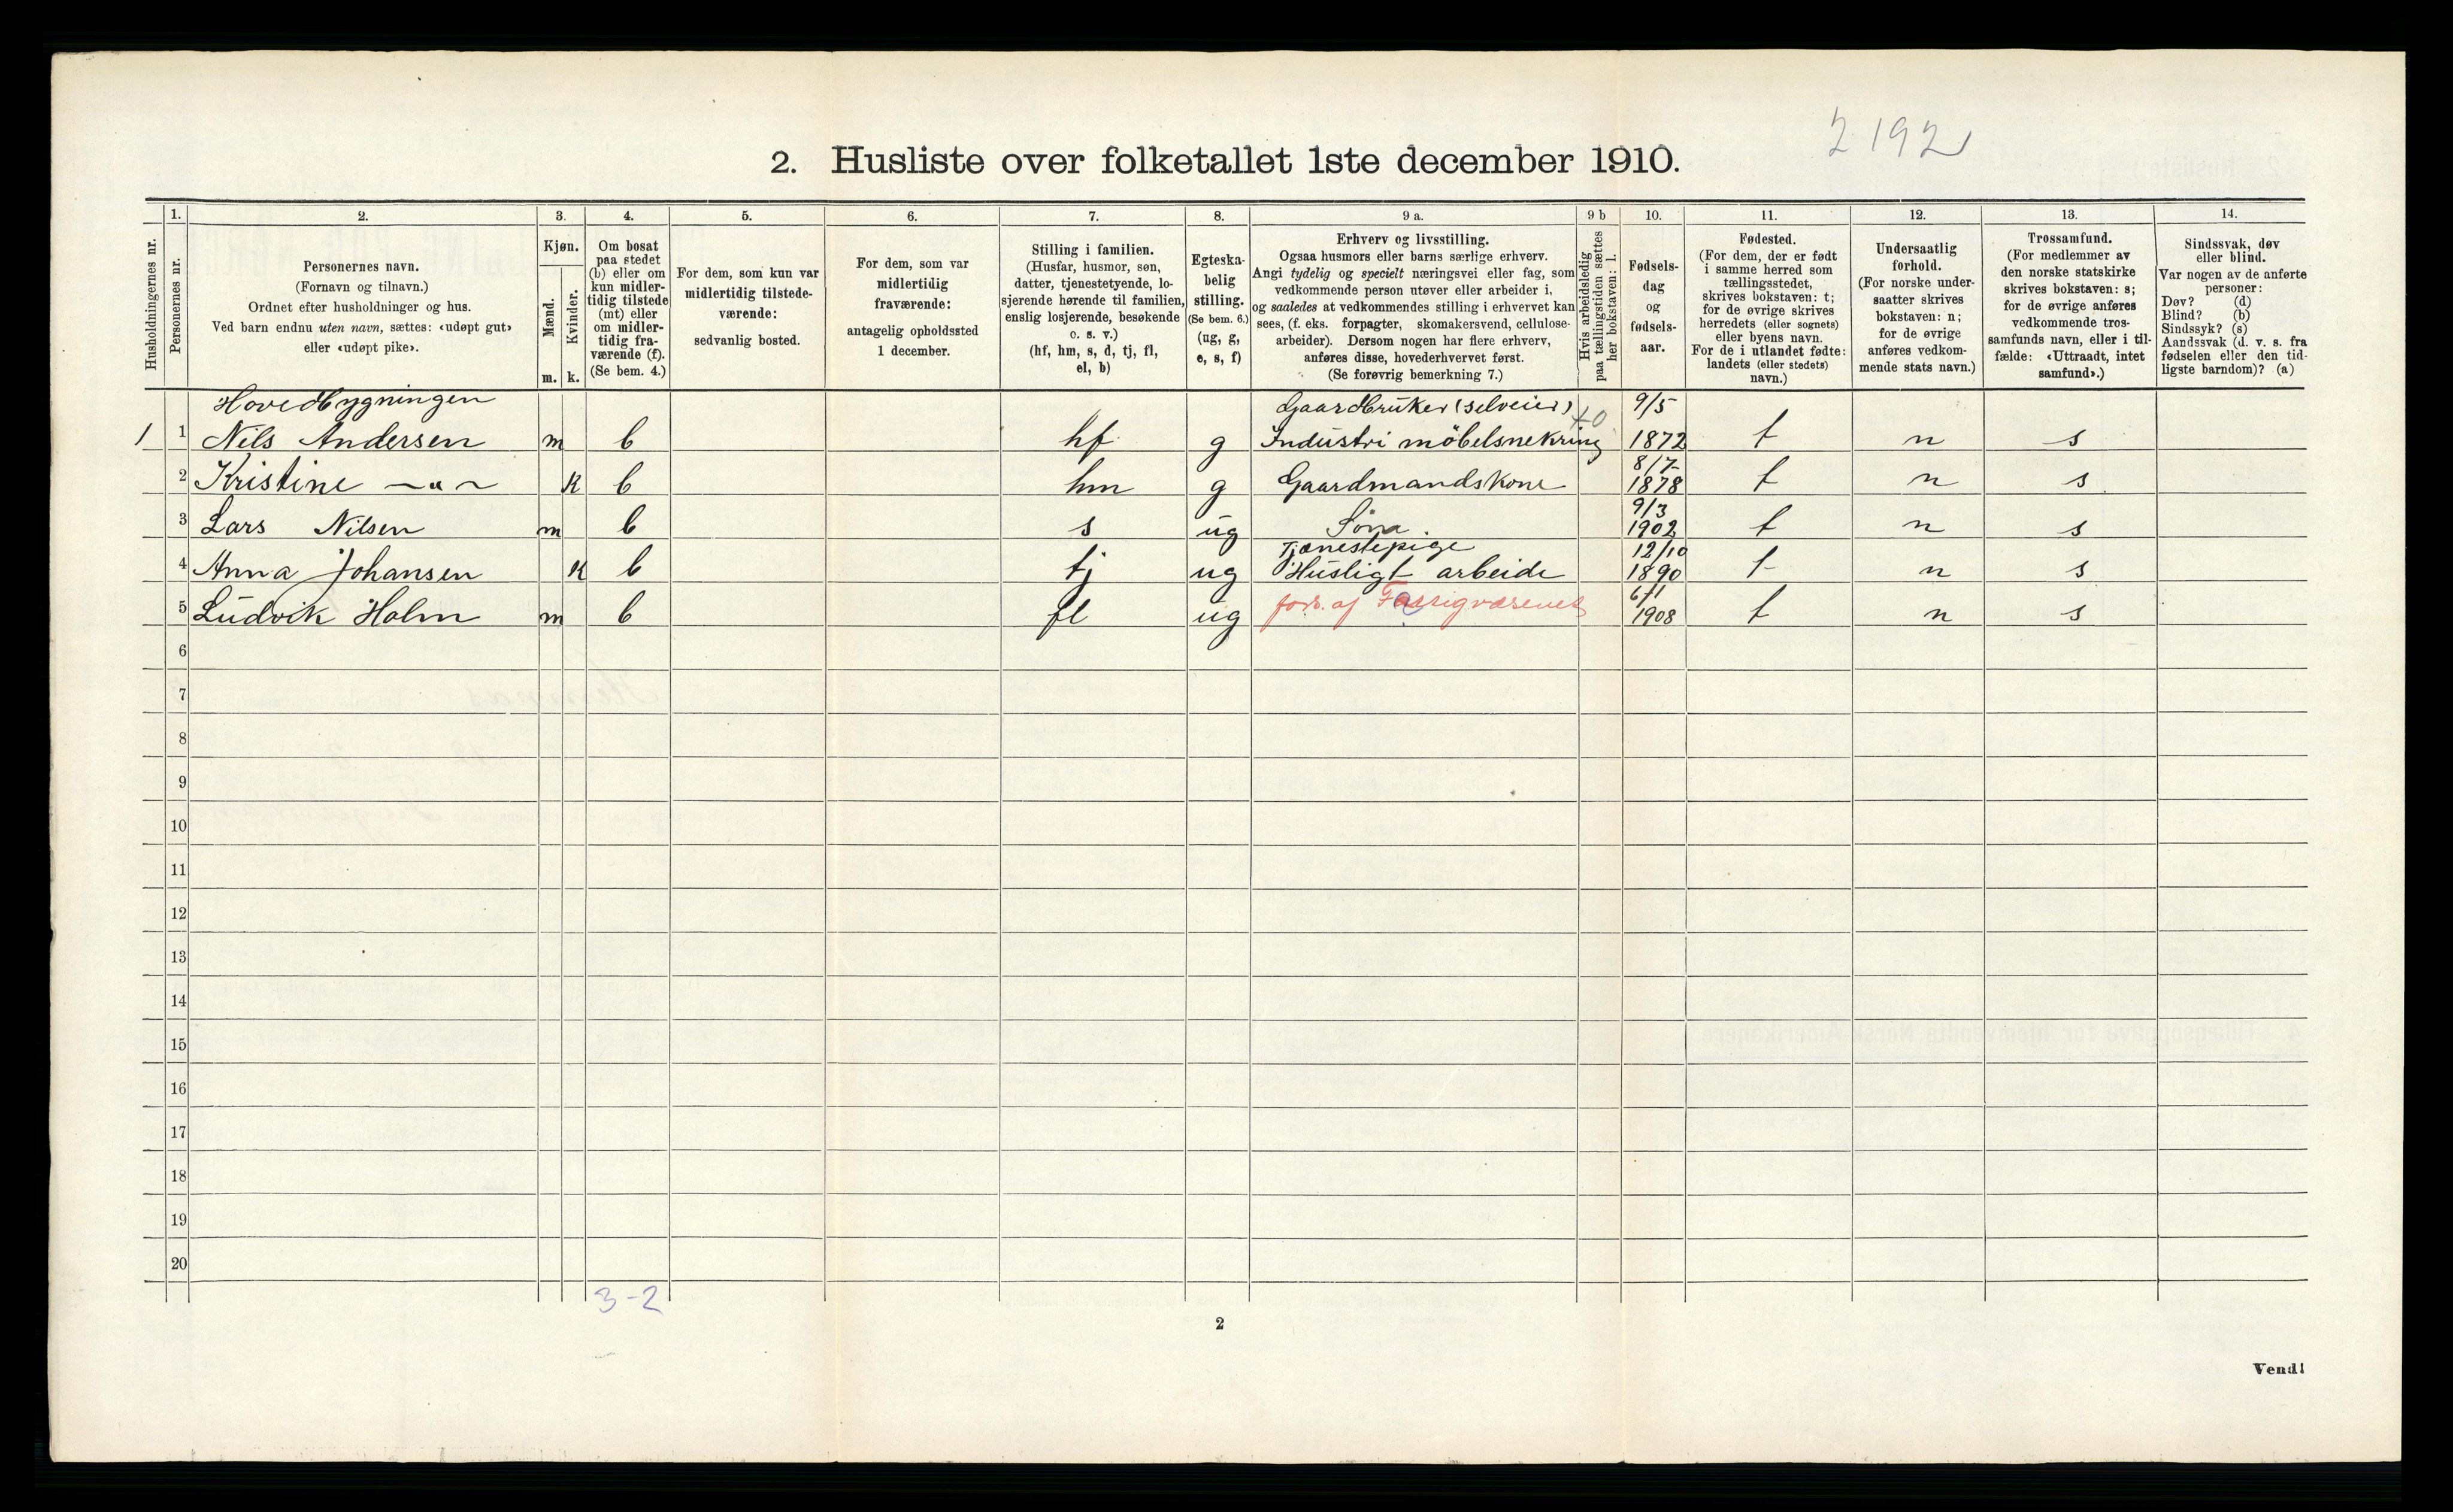 2 192
2. Husliste over folketallet 1ste december 1910.
1. 2. 3. 4. 5. 6. 7. 8. 9 a. 9 b 10. 11. 12. 13. 14.
Husholdningernes nr.
Personernes nr.
Personernes navn.
(Fornavn og tilnavn.)
Ordnet efter husholdninger og hus.
Ved barn endnu uten navn, sættes: «udøpt gut»
eller «udøpt pike».
Kjøn.
Mænd.
Kvinder.
m. k.
Om bosat
paa stedet
(b) eller om
kun midler-
tidig tilstede
(mt) eller
om midler-
tidig fra-
værende (f).
(Se bem. 4.)
For dem, som kun var
midlertidig tilstede-
værende:
sedvanlig bosted.
For dem, som var
midlertidig
fraværende:
antagelig opholdssted
1 december.
Stilling i familien.
(Husfar, husmor, søn,
datter, tjenestetyende, lo-
sjerende hørende til familien,
enslig losjerende, besøkende
o. s. v.)
(hf, hm, s, d, tj, fl,
el, b)
Egteska-
belig
stilling.
(Se bem. 6.)
(ug, g,
e, s, f)
Erhverv og livsstilling.
Ogsaa husmors eller barns særlige erhverv.
Angi tydelig og specielt næringsvei eller fag, som
vedkommende person utøver eller arbeider i,
og saaledes at vedkommendes stilling i erhvervet kan
sees, (f. eks. forpagter, skomakersvend, cellulose-
arbeider). Dersom nogen har flere erhverv,
anføres disse, hovederhvervet først.
(Se forøvrig bemerkning 7.)
Hvis arbeidsledig
paa tællingstiden sættes
her bokstaven: l.
Fødsels-
dag
og
fødsels-
aar.
Fødested.
(For dem, der er født
i samme herred som
tællingsstedet,
skrives bokstaven: t;
for de øvrige skrives
herredets (eller sognets)
eller byens navn.
For de i utlandet fødte:
landets (eller stedets)
navn.)
Undersaatlig
forhold.
(For norske under-
saatter skrives
bokstaven: n;
for de øvrige
anføres vedkom-
mende stats navn.)
Trossamfund.
(For medlemmer av
den norske statskirke
skrives bokstaven: s;
for de øvrige anføres
vedkommende tros-
samfunds navn, eller i til-
fælde: «Uttraadt, intet
samfund».)
Sindssvak, døv
eller blind.
Var nogen av de anførte
personer:
Døv? (d)
Blind? (b)
Sindssyk? (s)
Aandssvak (d. v. s. fra
fødselen eller den tid-
ligste barndom)? (a)
Hovedbygningen Gaardbruker (selveier) 9/5
1 1 Nils Andersen m b hf g Industri möbelsnekring 1872 t n s
8/7
2 Kristine -"- K b hm g Gaardmandskone 1878 t n s
9/3
3 Lars Nilsen m b s ug Søn 1902 t n s
Tjenestepige 12/10
4 Anna Johansen K b tj ug Husligt arbeide 1890 t n s
6/1
5 Ludvik Holm m b fl ug fors. af Fattigvæsenet 1908 t n s
6
7
8
9
10
11
12
13
14
15
16
17
18
19
20
3-2
2
Vend!